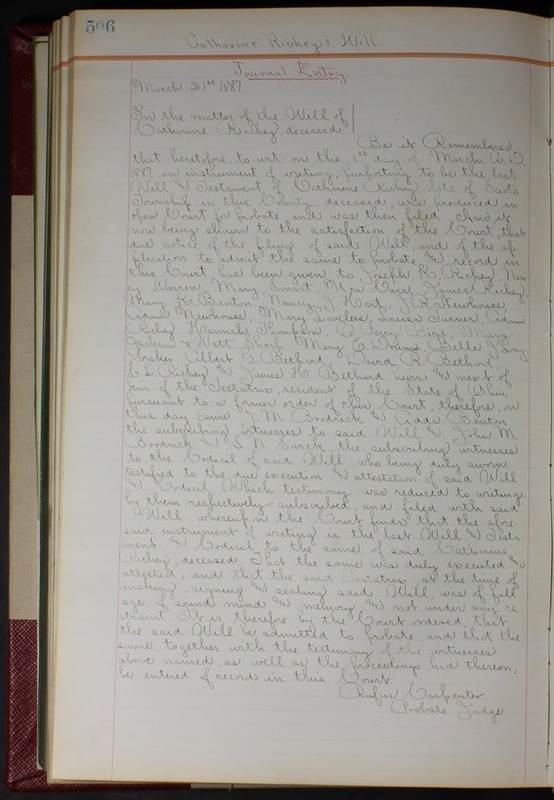 506
Catharine Richey's Will.
Journal Entry
March 21st 1887.
In the matter of the Will of
Catharine Richey, deceased
Be it Remembered,
that heretofore, to wit: on the 1st day of March, A.D.
1887 an instrument of writing, purporting to be the last
Will and Testament of Catharine Richey late of Scioto
Township, in this County, deceased, was produced in
open Court for probate and was then filed. And it
now being shown to the satisfaction of the Court, that
due notice of the filing of said Will, and of the ap-
plication to admit the same to probate and record in
this Court have been given to Joseph K. Richey, Nan-
cy Warren, Mary Smart, Mrs Carr, James Richey,
Mary K. Benton Nancy J. Hart, J. R. Newhouse
Adam Newhouse, Mary Loveless Louisa Turner, Adam
Richey Hannah Thompson, Perry Mary
Jackson Watt Sharp Mary E. Belle
Gilbert G. Bethard David R. Bethard
Richey and James H. Bethard heirs and next of
kin of the Testatrix, resident of the State of Ohio,
pursuant to a former order of this Court, therefore, on
this day came J. M. Brodrick and Adda Benton
the subscribing witnesses to said Will and John M.
Brodrick and S. N. the subscribing witnesses
to the Codicil of said Will, who being duly sworn,
testified to the due execution and attestation of said Will
and Codicil Which testimony was reduced to writing
by them respectively subscribed, and filed with said
Will, whereupon the Court finds that the afore-
said instrument of writing is the last Will and Testa-
ment and Codicil to the same, of said Catharine
Richey, deceased That the same was duly executed and
attested, and that the said Testatrix at the time of
making, signing and sealing said Will, was of full
age, of sound mind and memory, and not under any re-
straint It is, therefore by the Court ordered, that
the said Will be admitted to probate, and that the
same, together with the testimony of the witnesses
above named, as well as the proceedings had thereon,
be entered of record in this Court
Rufus Carpenter
Probate Judge